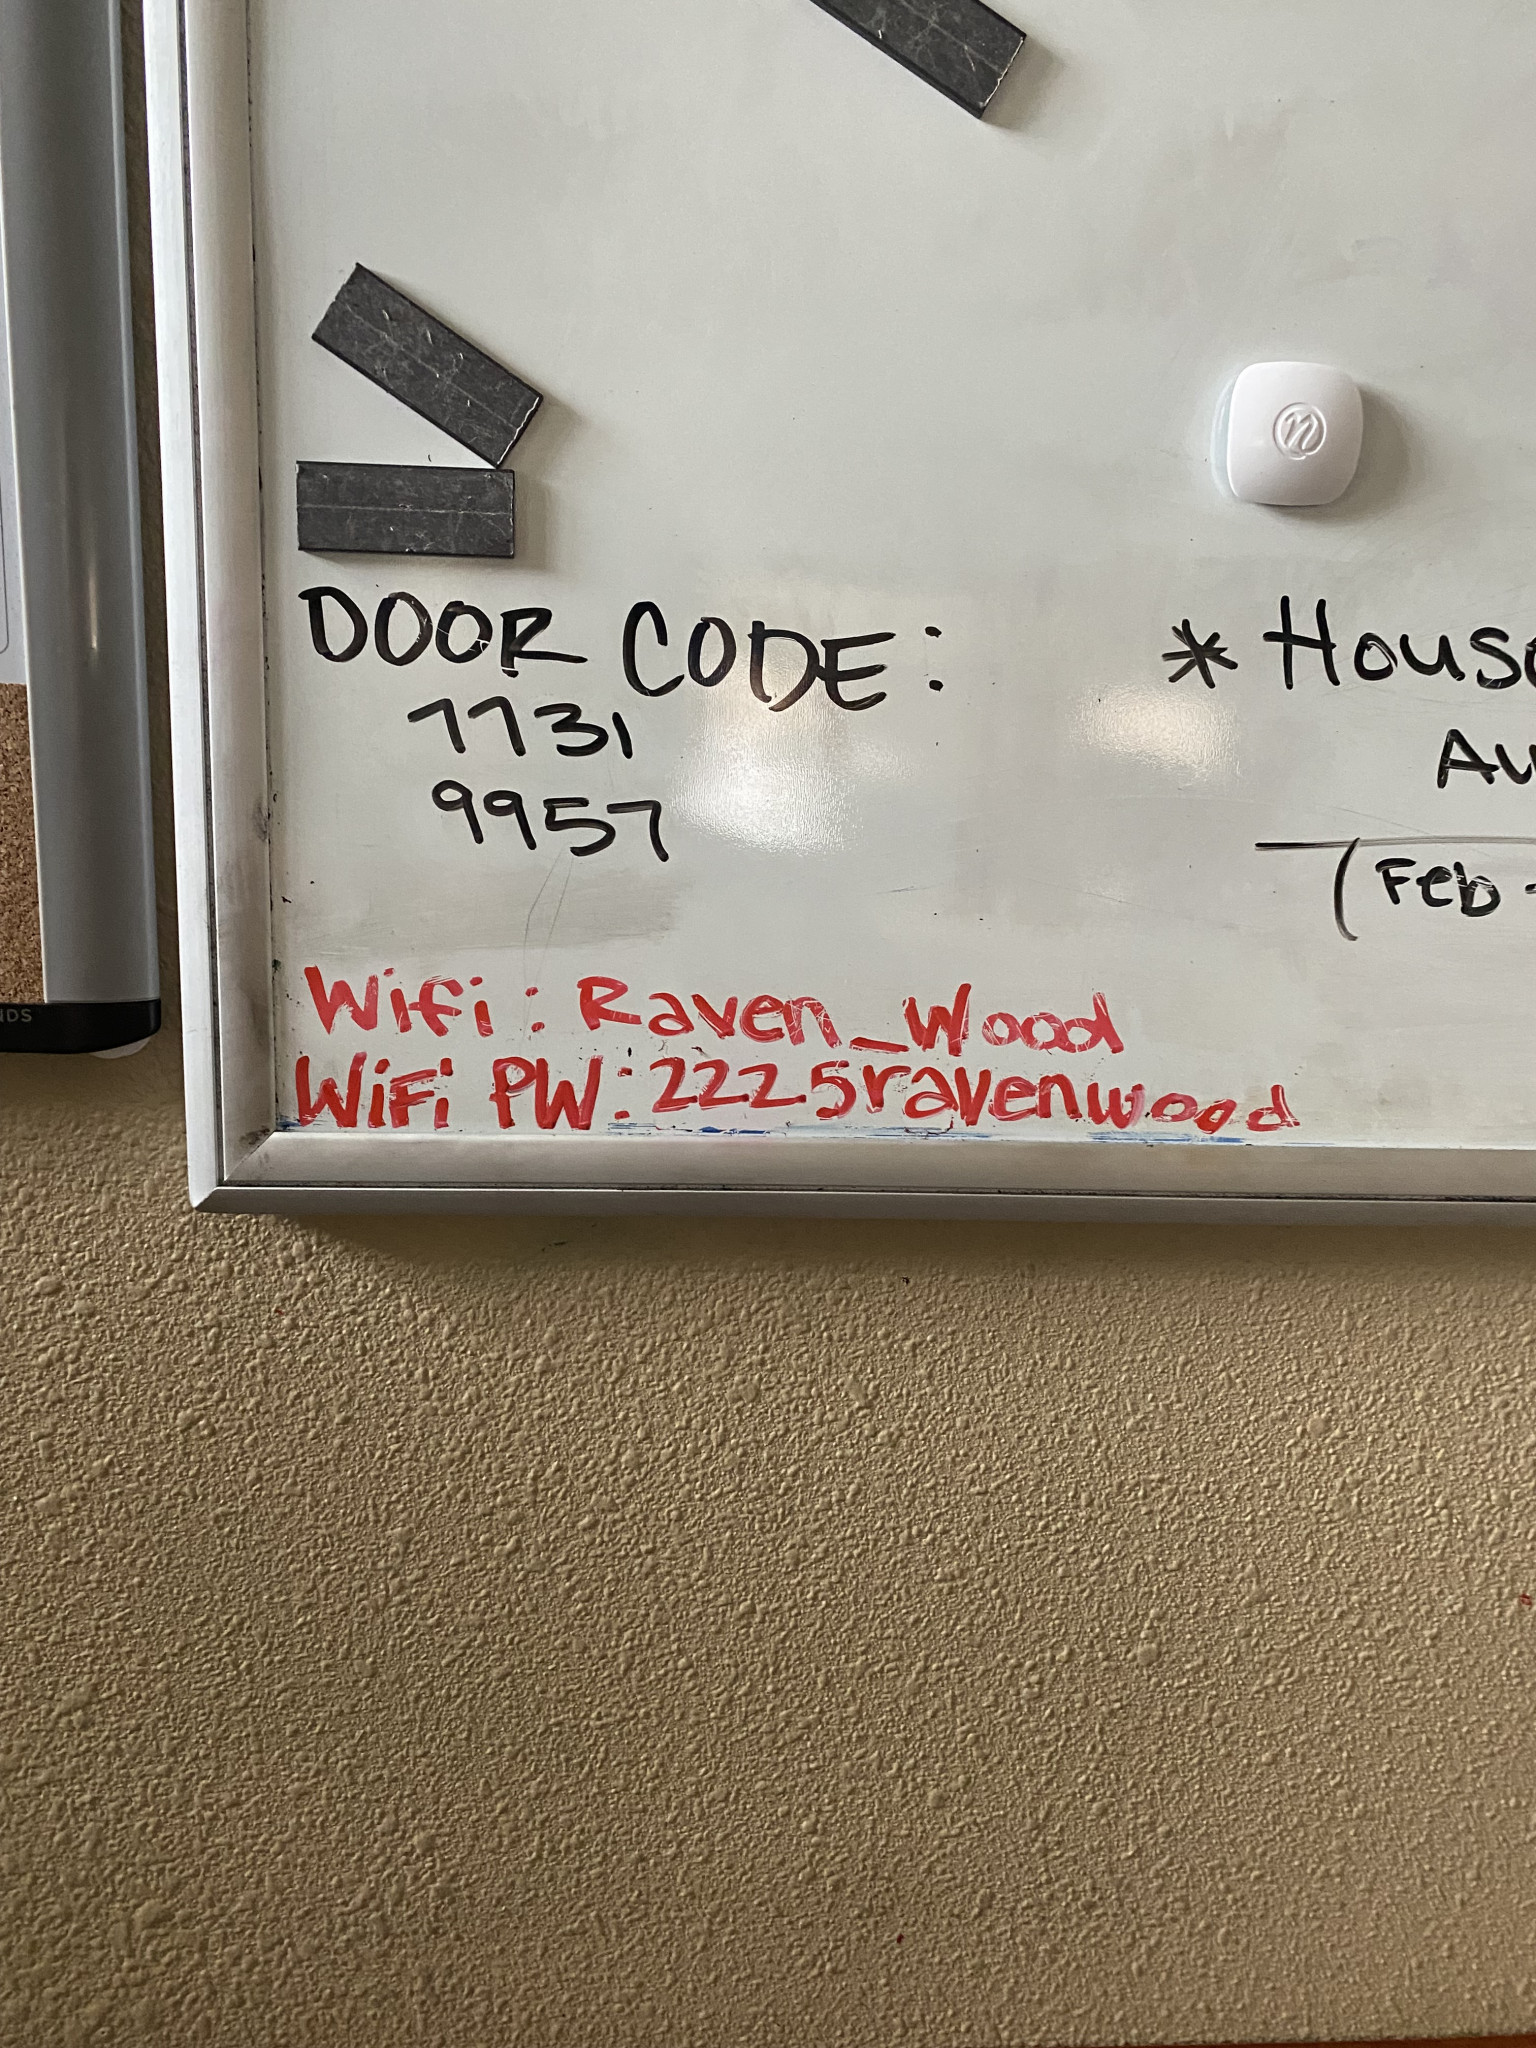 DOOR CODE:
7731
9957
* House
Au
(Feb -
Wifi: Raven_Wood
WiFi PW: 2225ravenwood
NDS
n